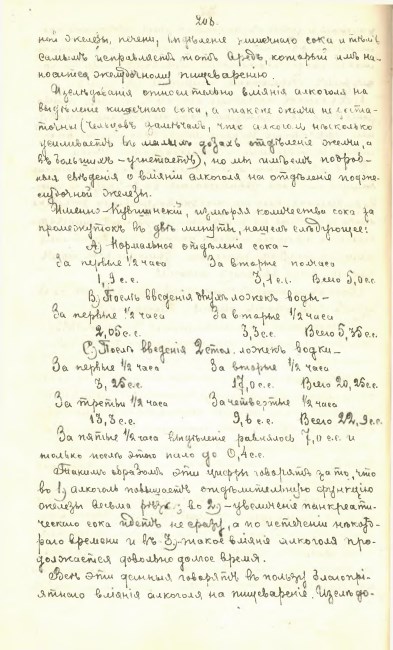 206.
ной железы, печени, отдѣленіе кишечнаго сока и тѣмъ
самымъ исправляетъ тотъ вредъ, который имъ на-
носится желудочному пищеваренію.
Изслѣдованія относительно вліянія алкоголя на
выдѣленіе кишечнаго сока, а также желчи недоста-
точны (Чельцовъ замѣчалъ, что алкоголь нѣсколько
усиливаетъ въ малыхъ дозахъ отдѣленіе желчи, а
въ большихъ - угнетаетъ), но мы имѣемъ подроб-
ныя свѣденія о вліяніи алкоголя на отдѣленіе подже-
лудочной железы.
Именно Кувшинскій, измѣряя количество сока за
промежутокъ въ двѣ минуты, нашелъ слѣдующее:
А) Нормальное отдѣленіе сока -
За первые 1/2 часа За вторые полчаса
1,9 с.с. 3,1 с.с. Всего 5,0 с.с.
В) Послѣ введенія двухъ ложекъ воды -
За первые 1/2 часа За вторые 1/2 часа
2,05 с.с. 3,3 с.с. Всего 5,35 с.с.
С) Послѣ введенія 2 стол. ложекъ водки -
За первые 1/2 часа За вторые 1/2 часа
3,25 с.с. 17,0 с.с. Всего 20,25 с.с.
За третьи 1/2 часа За четвертые 1/2 часа
13,3 с.с. 9,6 с.с. Всего 22,9 с.с.
За пятые 1/2 часа выдѣленіе равнялось 7,0 с.с. и
только послѣ этого пало до 0,4 с.с.
Такимъ образомъ эти цифры говорятъ за то, что
во 1) алкоголь повышаетъ отдѣлительную функцію
железы весьма во 2) - увеличеніе панкреати-
ческаго сока идетъ не сразу, а по истеченіи нѣкото-
раго времени и въ 3) - такое вліяніе алкоголя про-
должается довольно долгое время.
Всѣ эти данныя говорятъ въ пользу благопрі-
ятнаго вліянія алкоголя на пищевареніе. Изслѣдо-